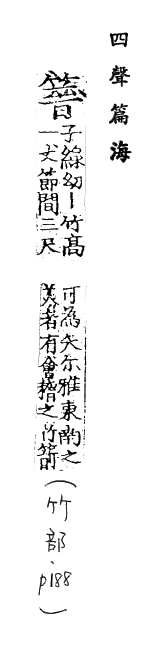 四聲篇海
子線切丨竹髙
一丈節間三尺
可為矢尔雅東南之
美者有會稽之竹箭
(竹部、p188)